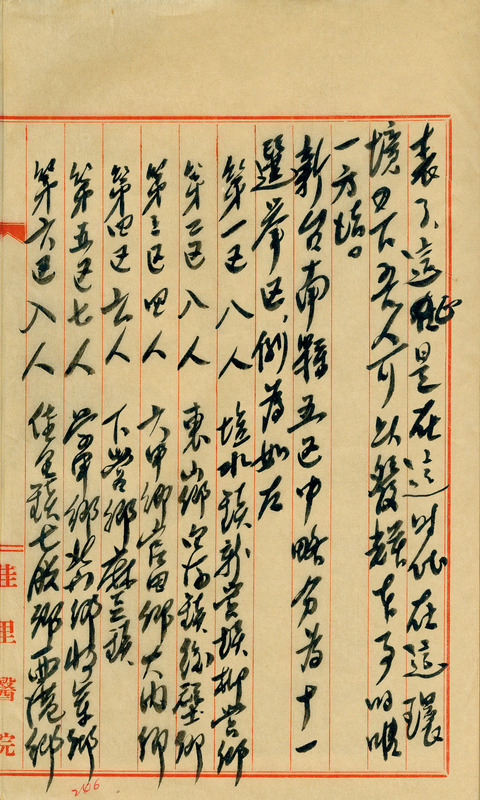 表了,這正是在這時代在這環
境之下吾人可以發輝本事的唯
一方法。
新台南縣五区中略分為十一
選挙区,例為如左
第一区 八人 塩水鎮新営鎮柳営鄉
第二区 八人 東山鄉白河鎮後壁鄉
第三区 四人 六甲鄉官田鄉大內鄉
第四区 六人 下営鄉麻豆鎮
第五区 七人 学甲鄉北門鄉將軍鄉
第六区 八人 佳里鎮七股鄉西港鄉
佳里醫院
266